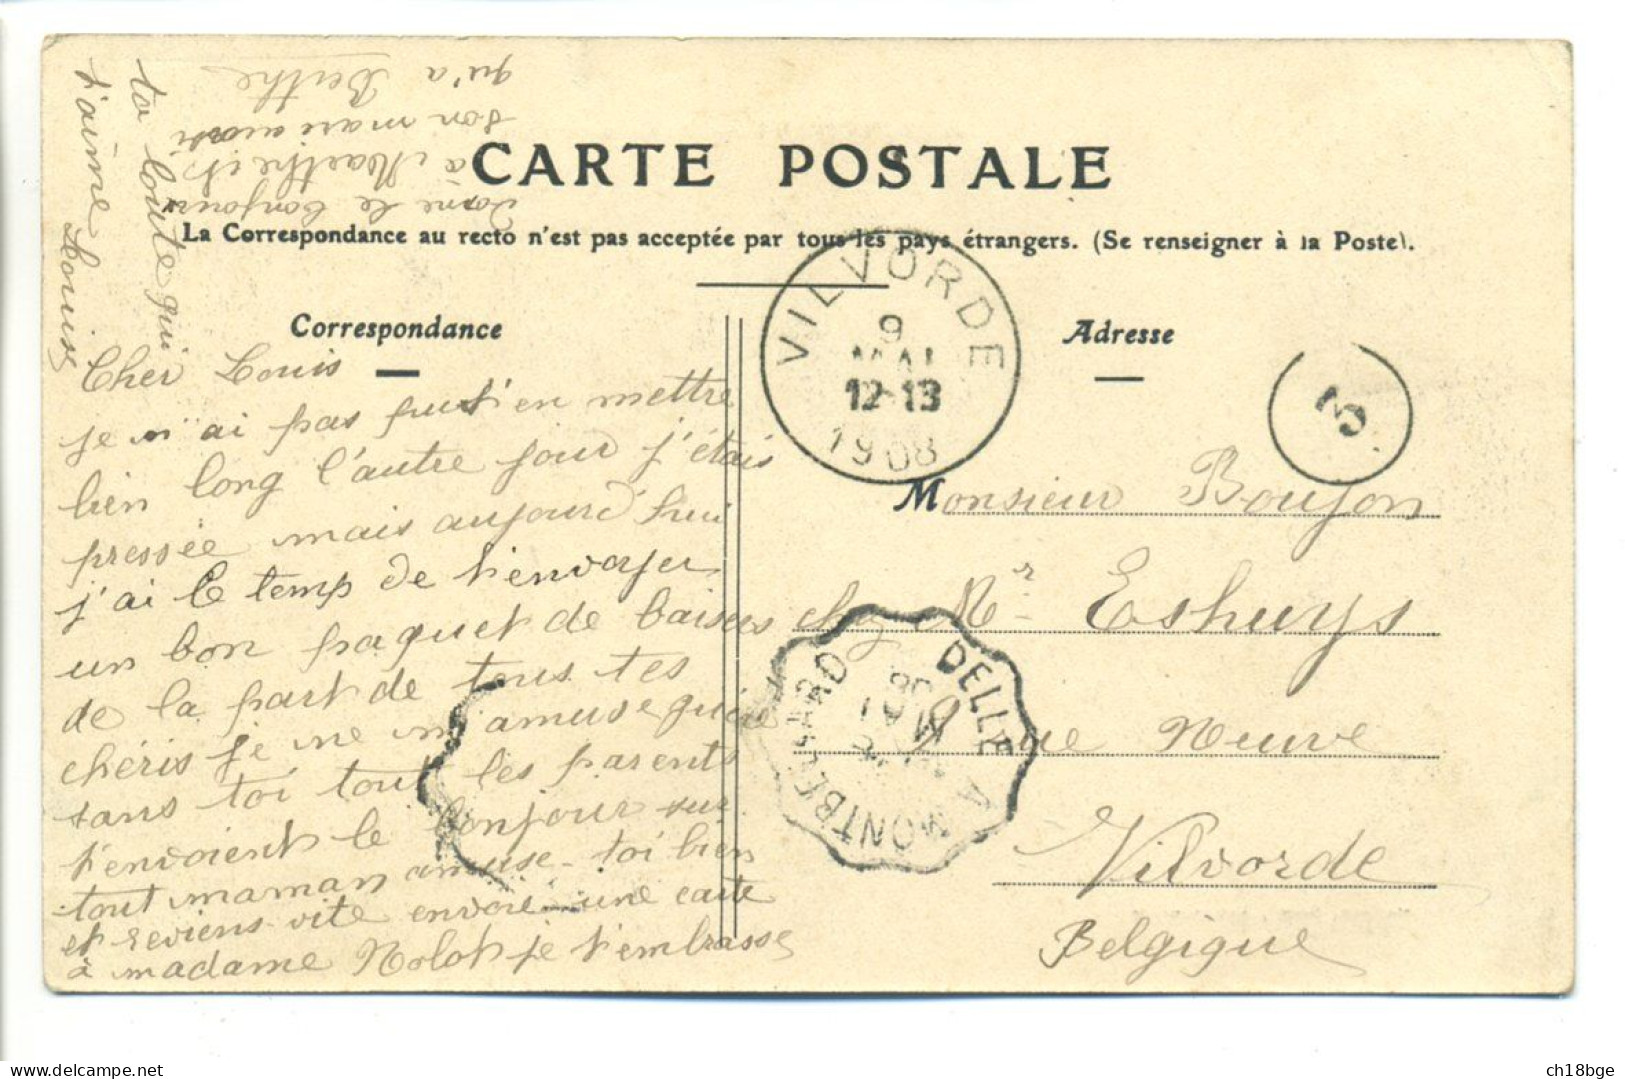 CARTE POSTALE
La Correspondance au recto n'est pas acceptée par tous les pays étrangers. (Se renseigner à la Poste).
Correspondance
Cher Louis
je n'ai pas put t'en mettre
bien long l'autre jour j'étais
pressée mais aujourd'hui
j'ai le temp de t'envoyer
un bon paquet de baisers
de la part de tous tes
chéris je ne m'amuse guère
sans toi tout les parents
t'envoient le bonjour sur
tout maman amuse-toi bien
et reviens vite envoie une carte
à madame Nolot je t'embrasse
ta toute qui
t'aime
Louise
Donne le bonjour
à Marthe et
son mari ainsi
qu'a Berthe
Adresse
Monsieur Boujon
chez Mr Eshuys
Rue Neuve
Vilvorde
Belgique
VILVORDE
9
MAI
12-13
1908
5
DELLE A MONTBELIARD
MAI
08
ch18bge